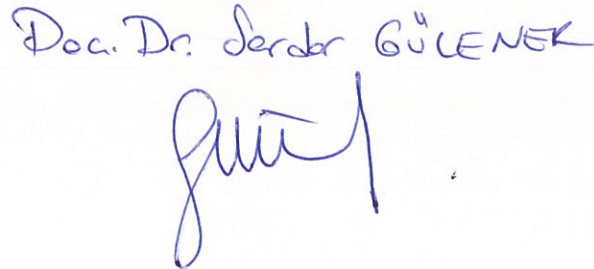 Doç. Dr. Serdar GÜCENEK